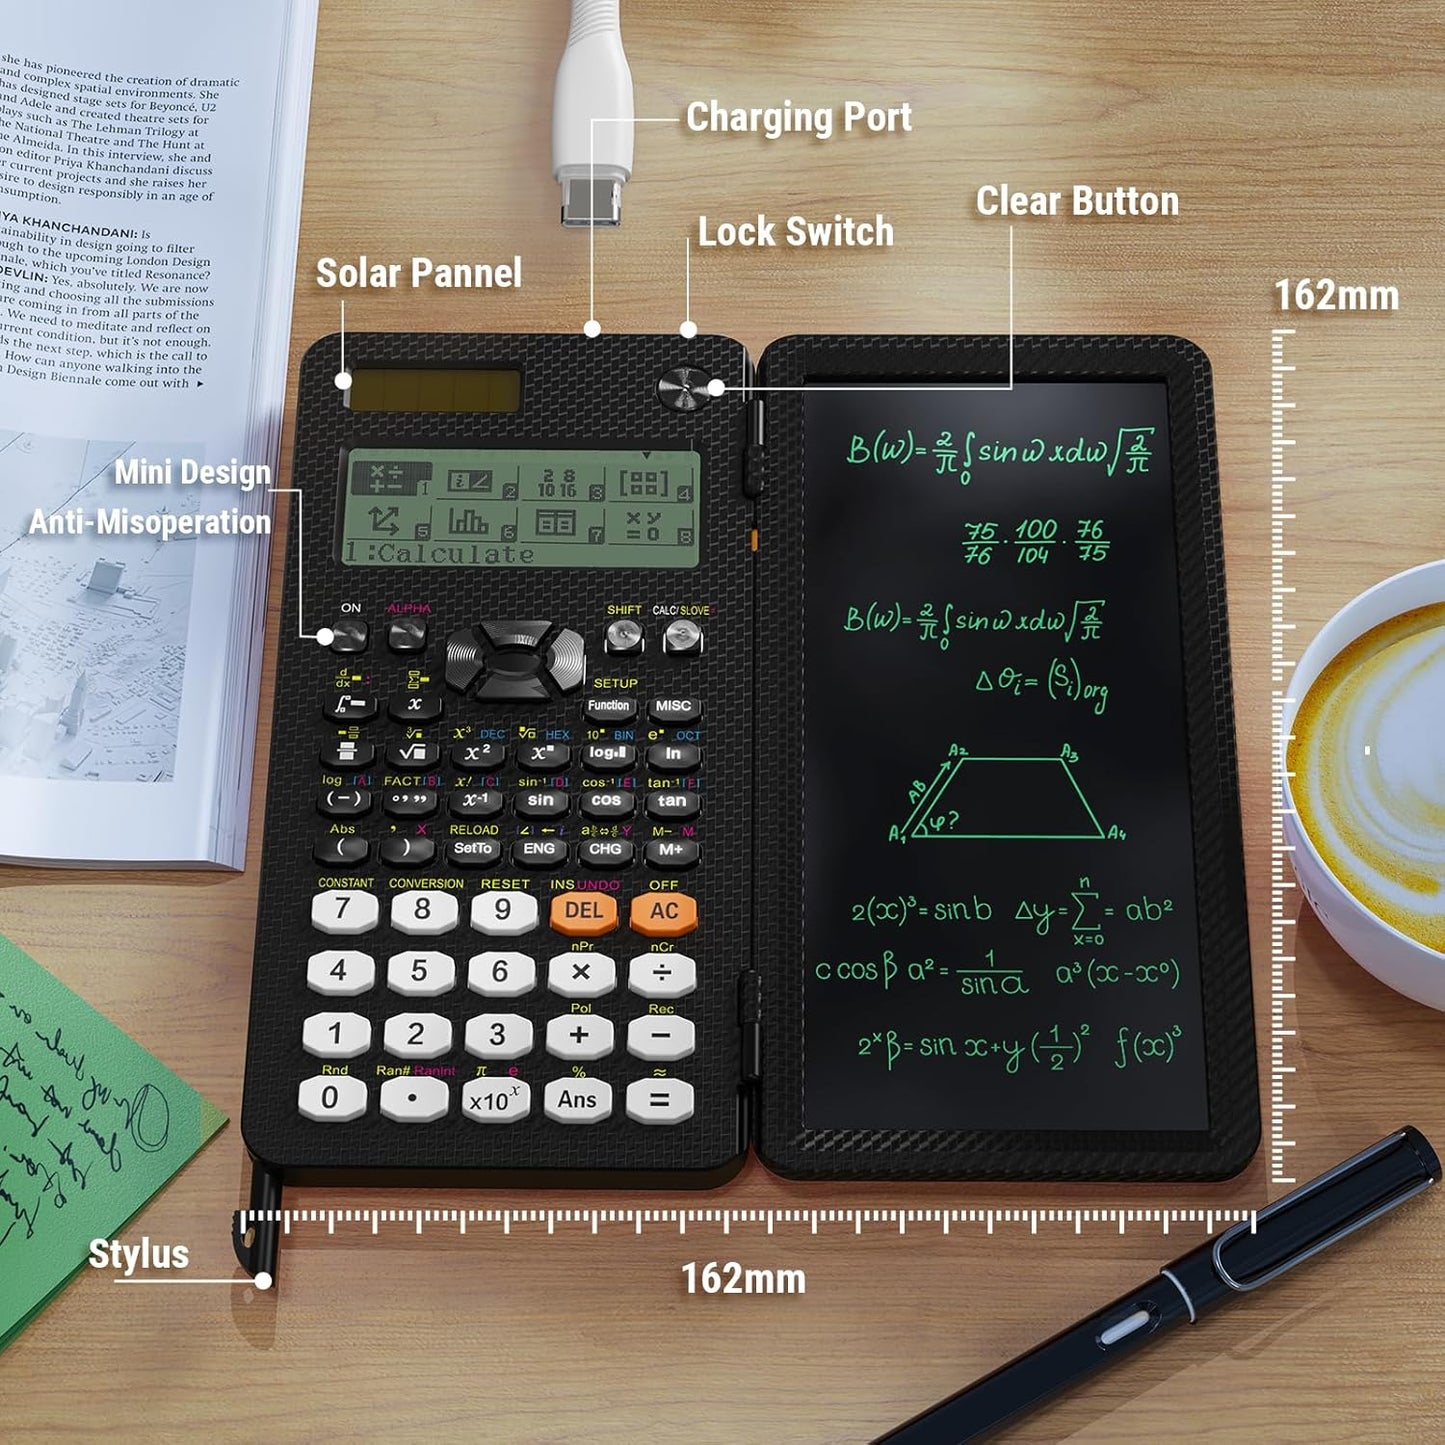 she has pioneered the creation of dramatic
and complex spatial environments. She
has designed stage sets for Beyoncé, U2
and Adele and created theatre sets for
plays such as The Lehman Trilogy at
the National Theatre and The Hunt at
Almeida. In this interview, she and
editor Priya Khanchandani discuss
current projects and she raises her
desire to design responsibly in an age of
consumption.
KHANCHANDANI: Is
sustainability in design going to filter
through to the upcoming London Design
which you've titled Resonance?
DEVLIN: Yes, absolutely. We are now
and choosing all the submissions
are coming in from all parts of the
We need to meditate and reflect on
current condition, but it's not enough.
the next step, which is the call to
How can anyone walking into the
Design Biennale come out with ▸
Charging Port
Clear Button
Lock Switch
Solar Pannel
162mm
Mini Design
Anti-Misoperation
× ÷ + − 1
i ∠ 2
2 8 10 16 3
4
5
6
7
x y = 0 8
1:Calculate
ON ALPHA SHIFT CALC/SLOVE=
SETUP
d/dx :
∫ x Function MISC
x³ DEC HEX 10 BIN e OCT
√ x² x log ln
log [A] FACT [B] x! [C] sin⁻¹ [D] cos⁻¹ [E] tan⁻¹ [F]
(−) °’” x⁻¹ sin cos tan
Abs , X RELOAD [∠] ← i a b/c⇔d/c Y M− M
( ) SetTo ENG CHG M+
CONSTANT CONVERSION RESET INS UNDO OFF
7 8 9 DEL AC
nPr nCr
4 5 6 × ÷
Pol Rec
1 2 3 + −
Rnd Ran# RanInt π e % ≈
0 . x10ˣ Ans =
B(ω)= 2/π ∫₀ sin ω x dω √2/π
75/76 · 100/104 · 76/75
B(ω)= 2/π ∫₀ sin ω x dω √2/π
Δ θᵢ= (Sᵢ)org
A₂ A₃
AB
A₁ φ? A₄
2(x)³= sin b Δy= n Σ x=0 = ab²
c cos β a²= 1/sin a a³(x-x⁰)
2ˣβ= sin x+y(1/2)² f(x)³
Stylus
162mm